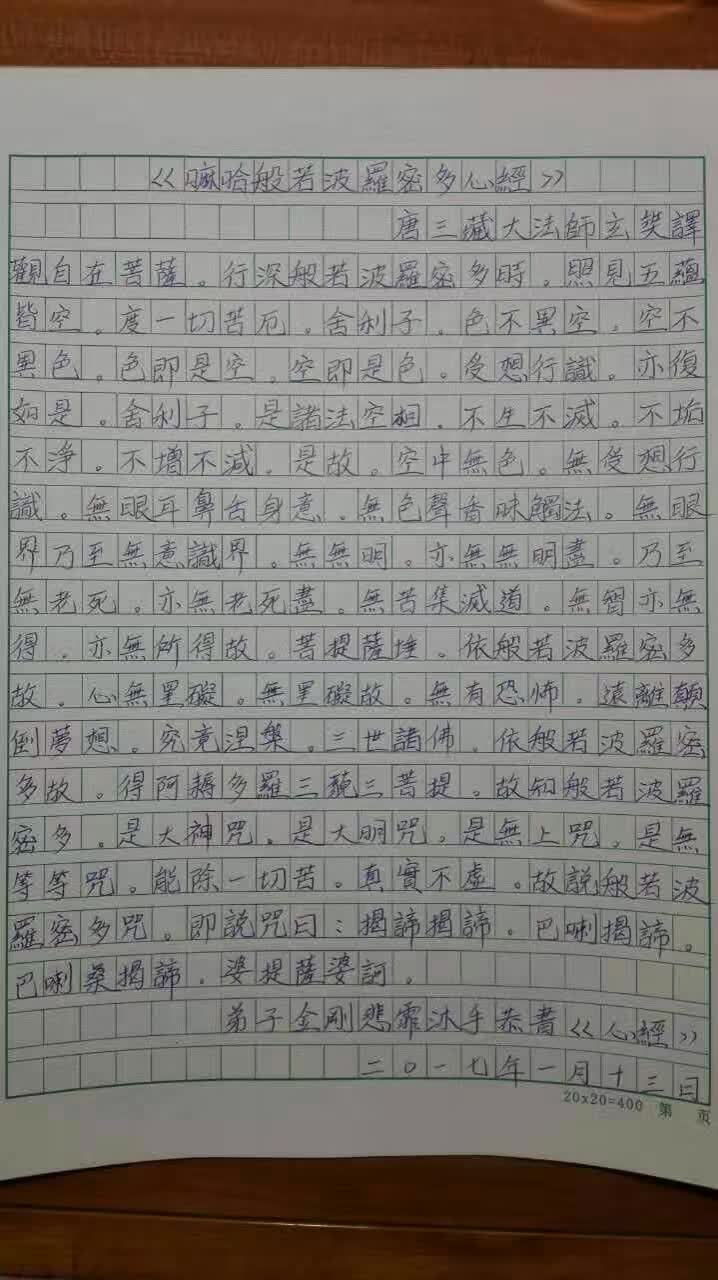 《嘛哈般若波羅密多心經》
唐三藏大法師玄奘譯
觀自在菩薩。行深般若波羅密多時。照見五蘊
皆空。度一切苦厄。舍利子。色不異空。空不
異色。色即是空。空即是色。受想行識。亦復
如是。舍利子。是諸法空相。不生不滅。不垢
不淨。不增不減。是故。空中無色。無受想行
識。無眼耳鼻舌身意。無色聲香味觸法。無眼
界乃至無意識界。無無明。亦無無明盡。乃至
無老死。亦無老死盡。無苦集滅道。無智亦無
得。亦無所得故。菩提薩埵。依般若波羅密多
故。心無罣礙。無罣礙故。無有恐怖。遠離顛
倒夢想。究竟涅槃。三世諸佛。依般若波羅密
多故。得阿耨多羅三藐三菩提。故知般若波羅
密多。是大神咒。是大明咒。是無上咒。是無
等等咒。能除一切苦。真實不虛。故說般若波
羅密多咒。即說咒曰：揭諦揭諦。巴喇揭諦。
巴喇桑揭諦。婆提薩婆訶。
弟子金剛悲霏沐手恭書《心經》
二〇一七年一月十三日
20x20=400 第 页